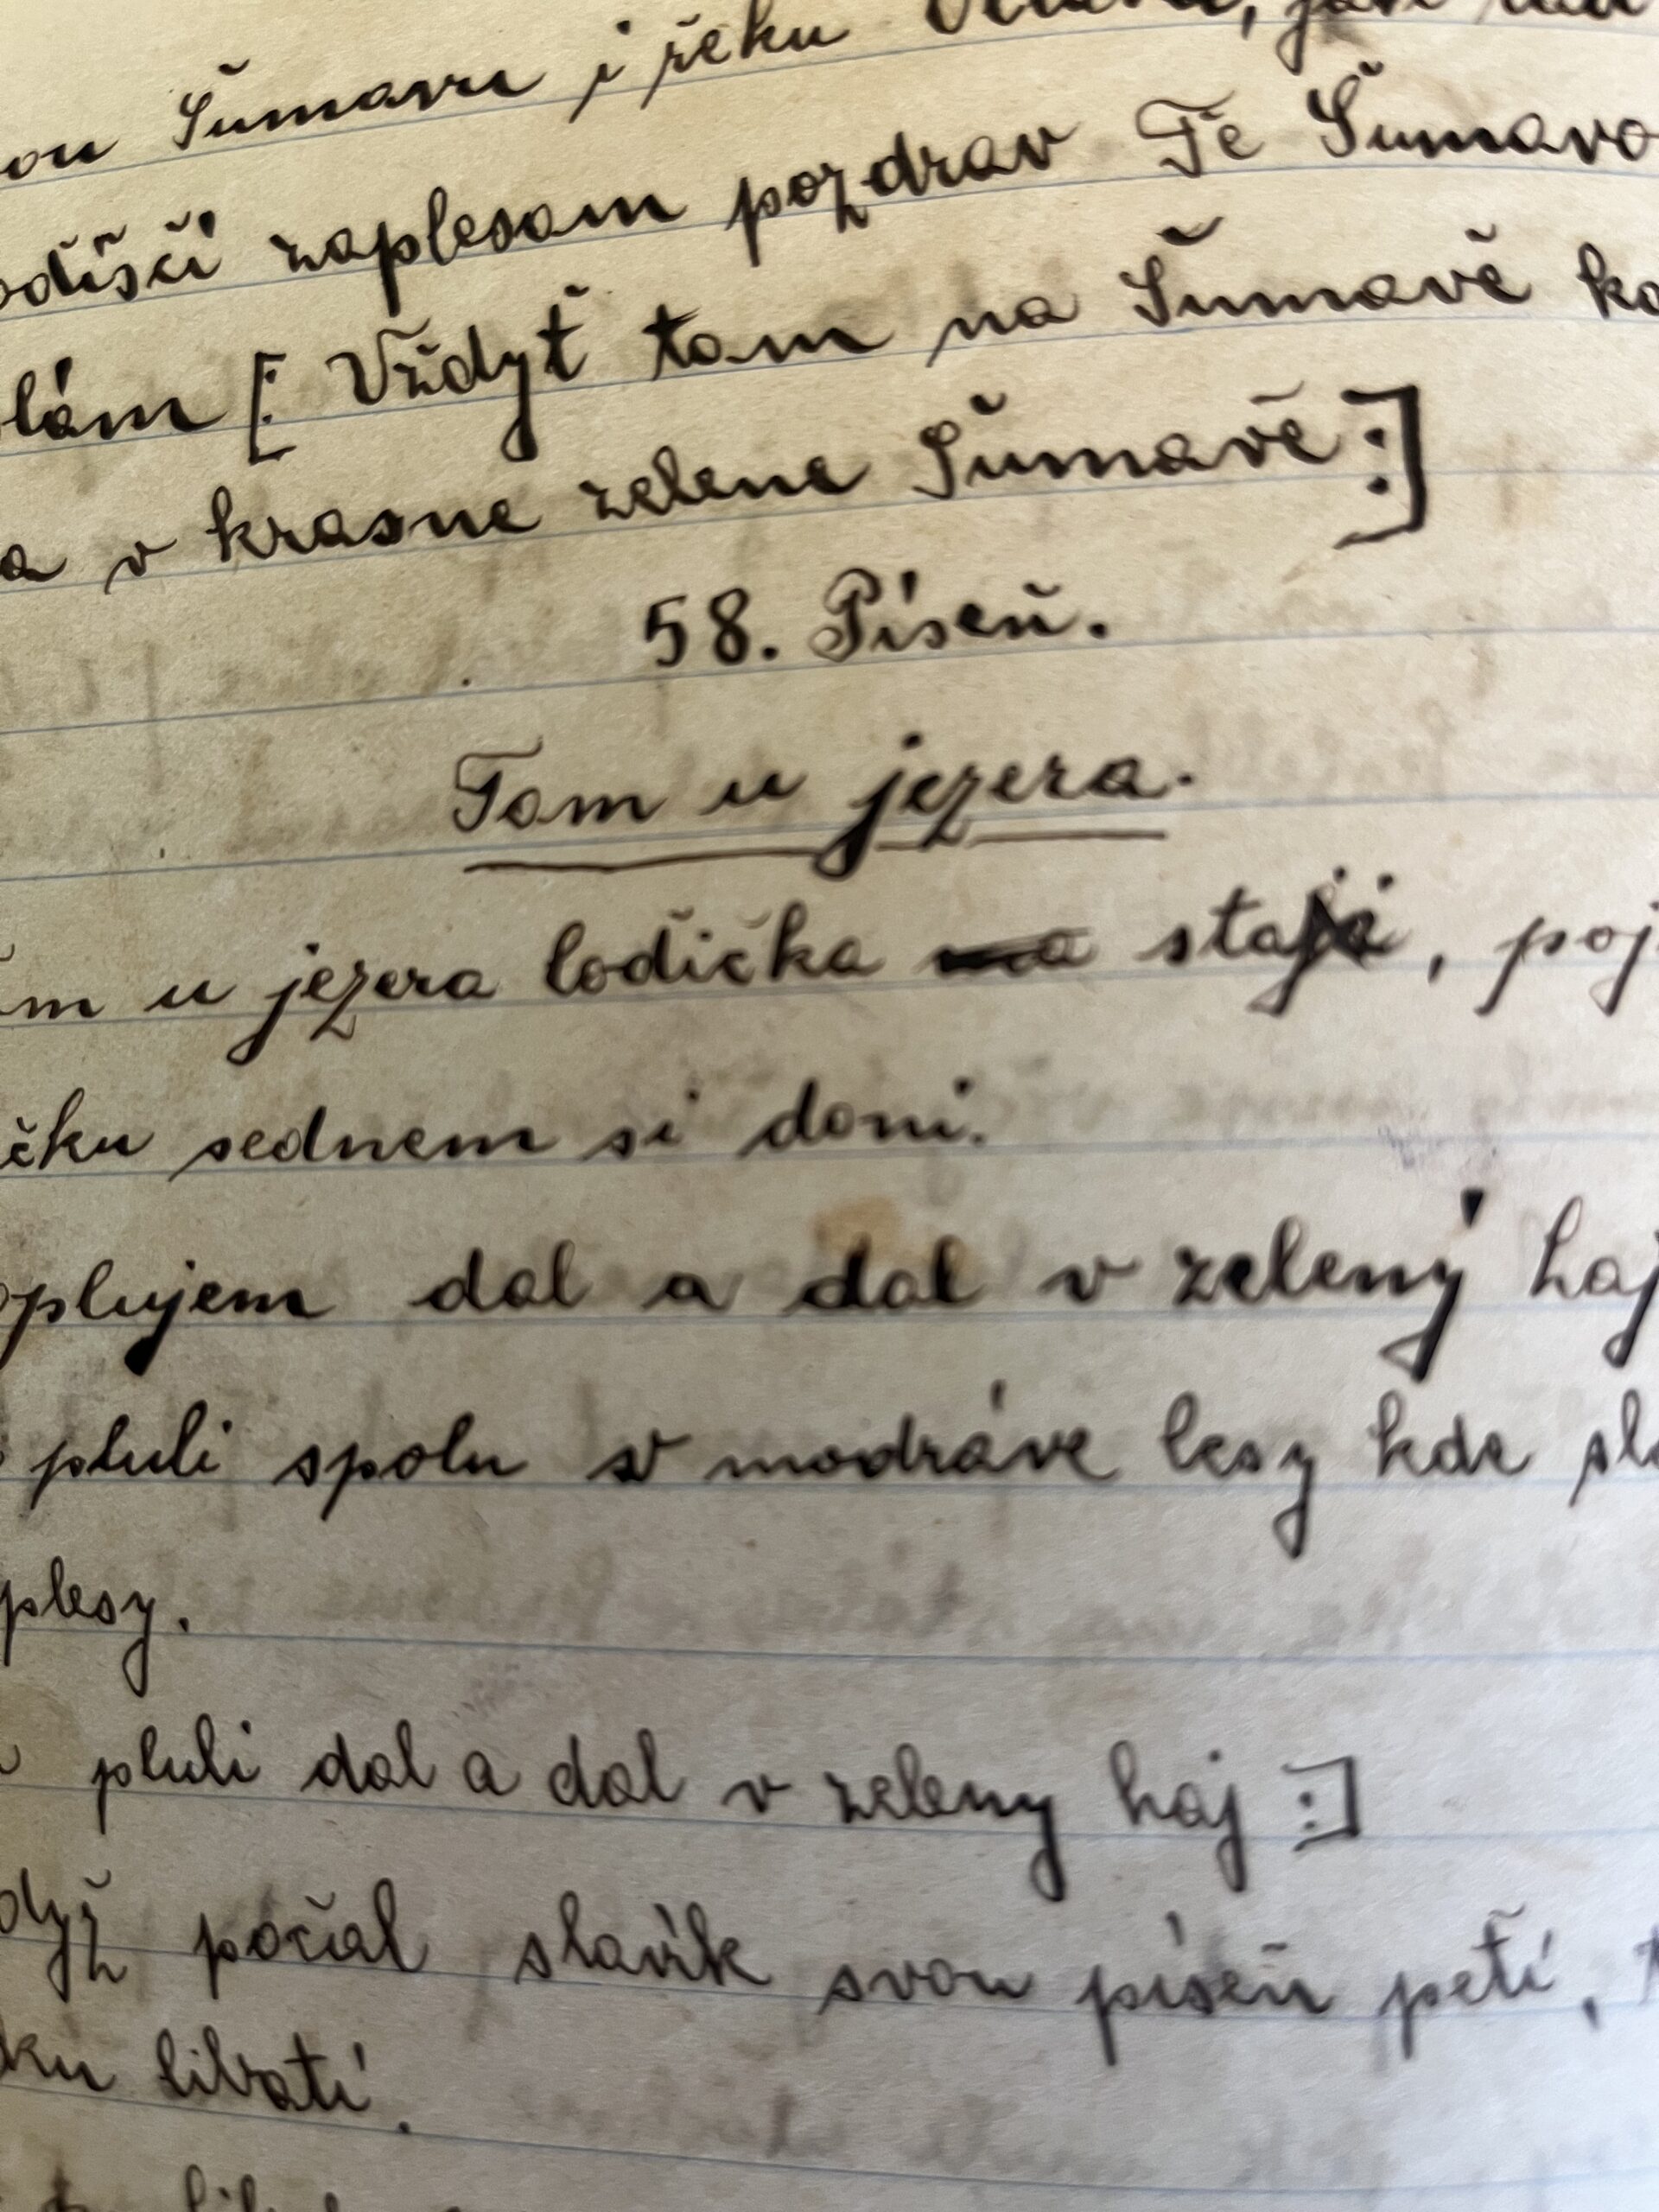 ou Šumavu i řeku
odišči zaplesam pozdrav Tě Šumavo
lám [: Vždyť tam na Šumavě
a v krasne zelene Šumavě :]
58. Píseň.
Tam u jezera.
m u jezera lodička staji, poj
čku sednem si doni.
plujem dal a dal v zelený haj
pluli spolu v modráve lesy kde sl
plesy.
pluli dal a dal v zeleny haj :]
dyž počal slavík svou píseň petí,
ku libatí.